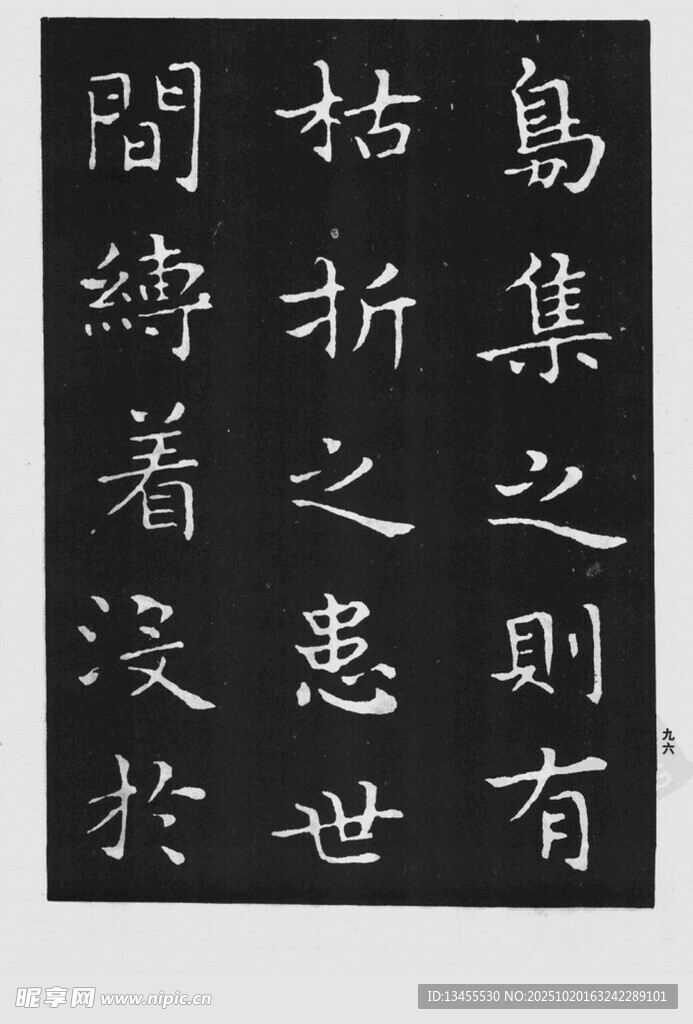 鳥集之則有
枯折之患世
間縛着没於
九六
昵享网 www.nipic.cn
ID:13455530 NO:20251020163242289101